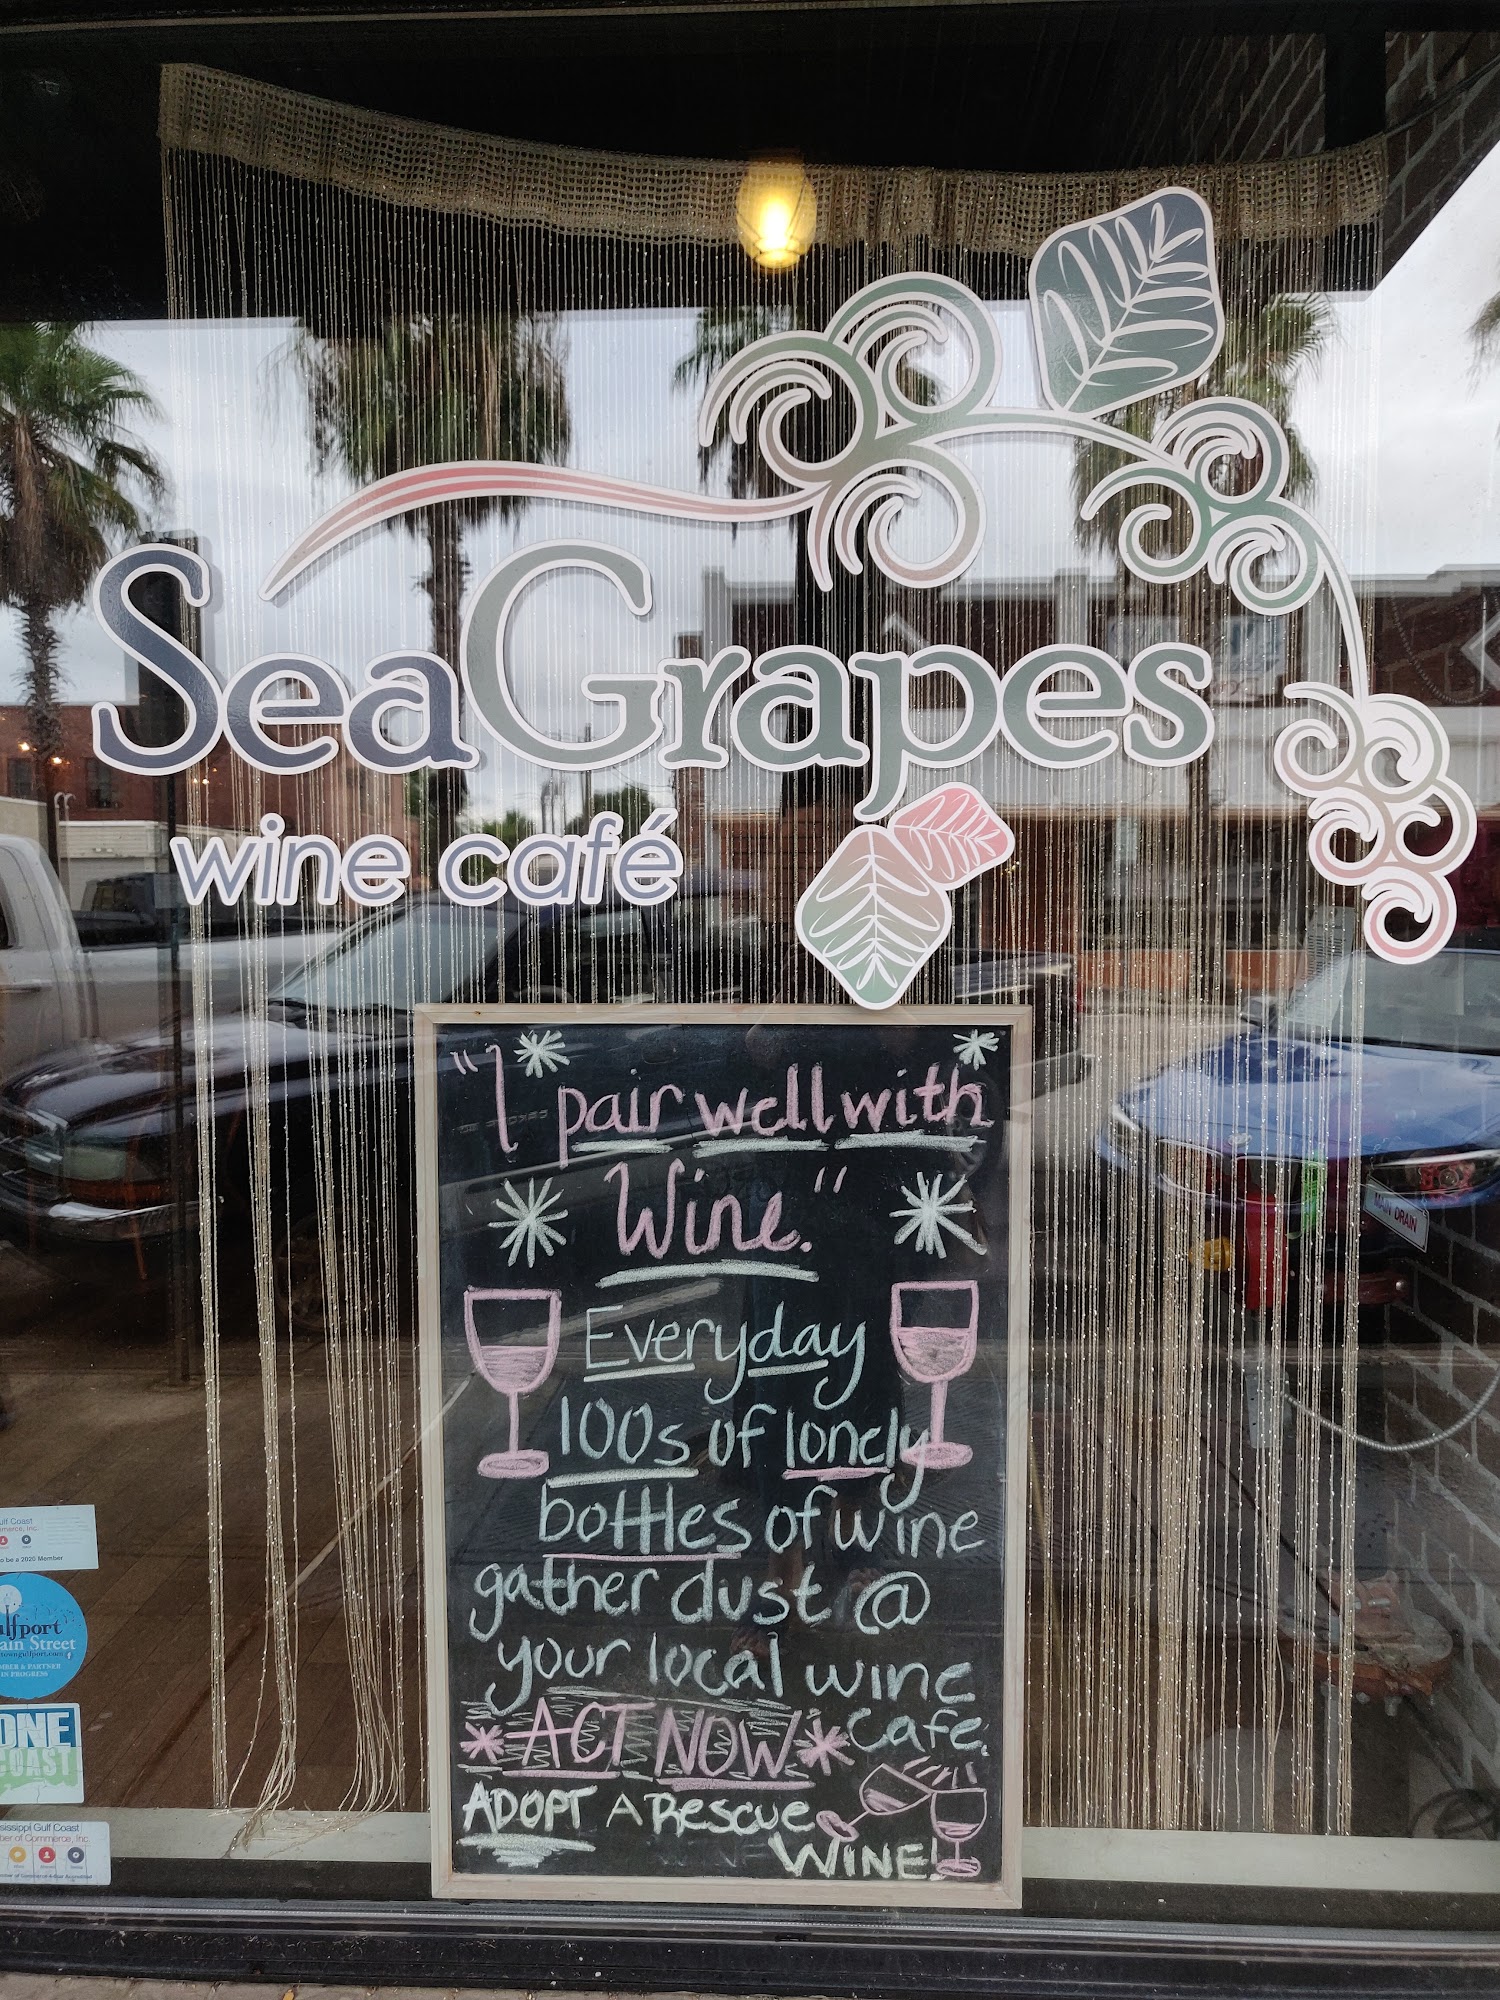 SeaGrapes
wine café
"I pair well with
Wine."
Everyday
100s of lonely
bottles of wine
gather dust @
your local wine
Cafe.
ACT NOW
ADOPT A RESCUE
WINE!
Gulf Coast
to be a 2020 Member
ulfport
ain Street
MBER & PARTNER
IN PROGRESS
ONE
COAST
sissippi Gulf Coast
ber of Commerce, Inc.
MAIN DRAIN